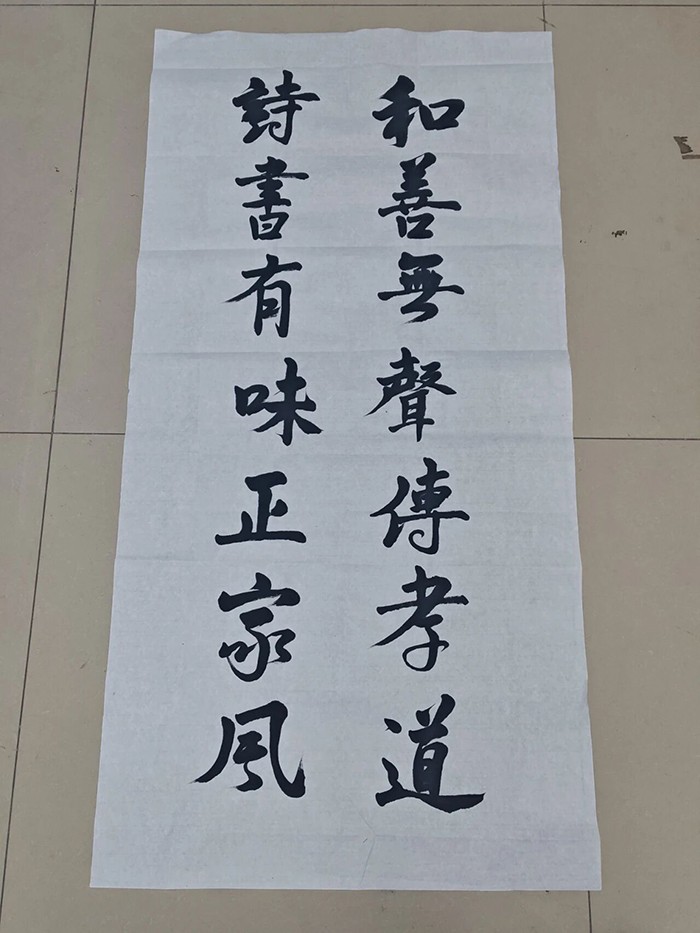 和善無聲傳孝道
詩書有味正家風